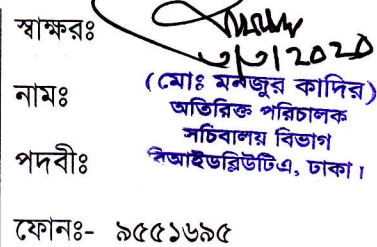 স্বাক্ষরঃ
৩/৩/2020
নামঃ (মোঃ মনজুর কাদির)
অতিরিক্ত পরিচালক
সচিবালয় বিভাগ
পদবীঃ বিআইডব্লিউটিএ, ঢাকা।
ফোনঃ- ৯৫৫১৬৯৫